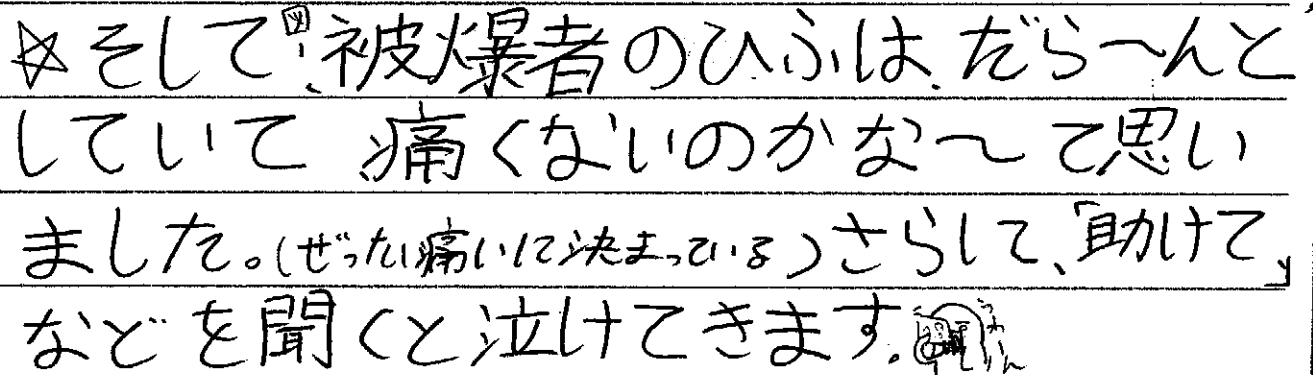 ☆そして、被爆者のひふは、だら〜んと
していて痛くないのかな〜て思い
ました。(ぜったい痛いに決まっている)さらして、「助けて」
などを聞くと泣けてきます。